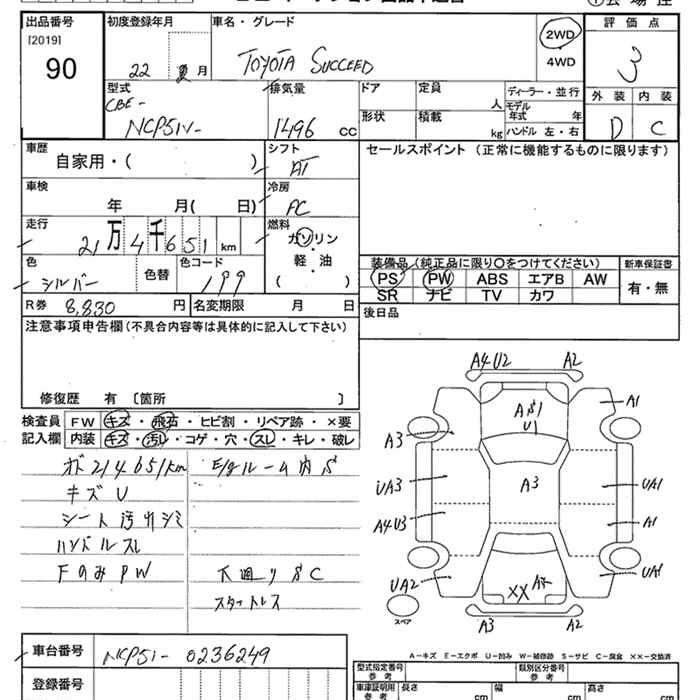 出品番号
[2019]
90
初度登録年月
22 月
車名・グレード
TOYOTA SUCCEED
2WD
4WD
評 価 点
3
外 装
内 装
D
C
型式
CBE-
NCP51V-
排気量
1496 CC
ドア
定員
人
形状
積載
kg
ディーラー・並行
モデル年式 年
ハンドル 左・右
車歴
自家用・( )
シフト
AT
セールスポイント (正常に機能するものに限ります)
車検
年 月( 日)
冷房
AC
走行
21 万 4 千 6 5 1 km
燃料
ガソリン
・
軽・油
( )
色
シルバー
色替
色コード
199
装備品(純正品に限り○をつけてください)
PS PW ABS エアB AW
SR ナビ TV カワ
新車保証書
有・無
R券 8,830 円
名変期限 月 日
後日品
注意事項申告欄(不具合内容等は具体的に記入して下さい)
修復歴 有 〔箇所 〕
検査員
記入欄
FW キズ・飛石・ヒビ割・リペア跡・×要
内装 キズ・汚レ・コゲ・穴・スレ・キレ・破レ
オド214651km
キズU
シート汚れシミ
ハンドルスレ
FのみPW
E/gルーム内S
下廻りSC
スタットレス
A4U2
A2
A1
AS1
U1
A3
UA3
A3
UA1
A4U3
A1
UA2
UA1
XX
スペア
A3
A2
A-キズ E-エクボ U-凹み W-補修跡 S-サビ C-腐食 XX-交換済
車台番号
NCP51- 0236249
登録番号
型式指定番号
参考
類別区分番号
参考
車庫証明用
参考
長さ cm
幅 cm
高さ cm